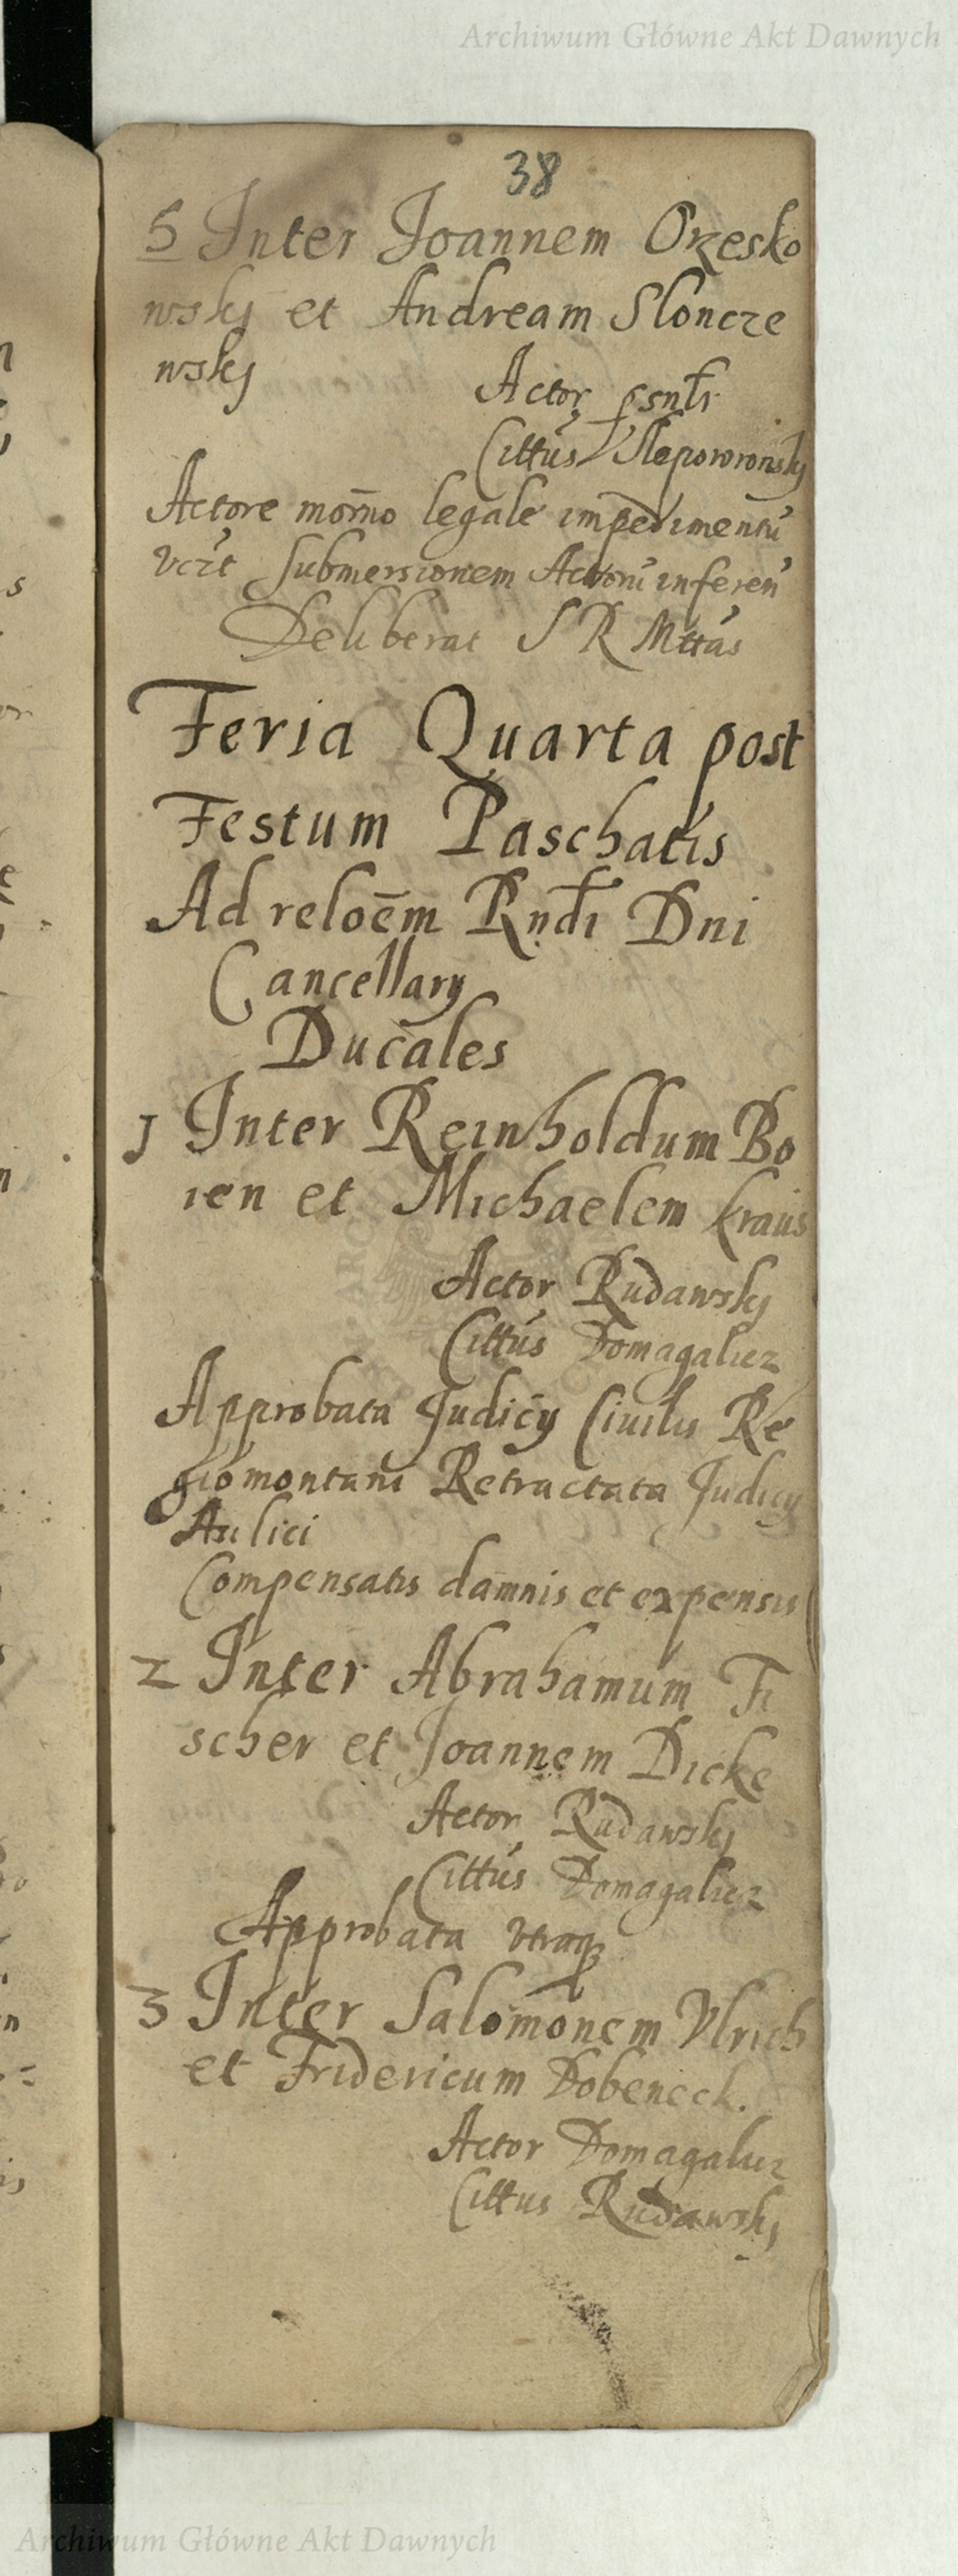 Archiwum Główne Akt Dawnych
38
5 Inter Joannem Orzesko
wskj et Andream Sloncze
wskj
Actor psntr
Cittus Sleporowonskj
Actore mom̄o legale impedimentu
vezt submersionem Actoru inferen
Deliberat S R Mttas
Feria Quarta post
Festum Paschatis
Ad reloēm Rndi Dni
Cancellary
Ducales
1 Inter Reinholdum Bo
ien et Michaelem Kraus
Actor Rudawskj
Cittus Domagalicz
Approbata Judicy Ciuilis Re
giomontani Retractata Judicy
Aulici
Compensatis damnis et expensis
2 Inter Abrahamum Fi
scher et Joannem Dicke
Actor Rudawskj
Cittus Domagalicz
Approbata vtraq
3 Inter Salomonem Vlrich
et Fridericum Dobeneck.
Actor Domagalicz
Cittus Rudawskj
Archiwum Główne Akt Dawnych